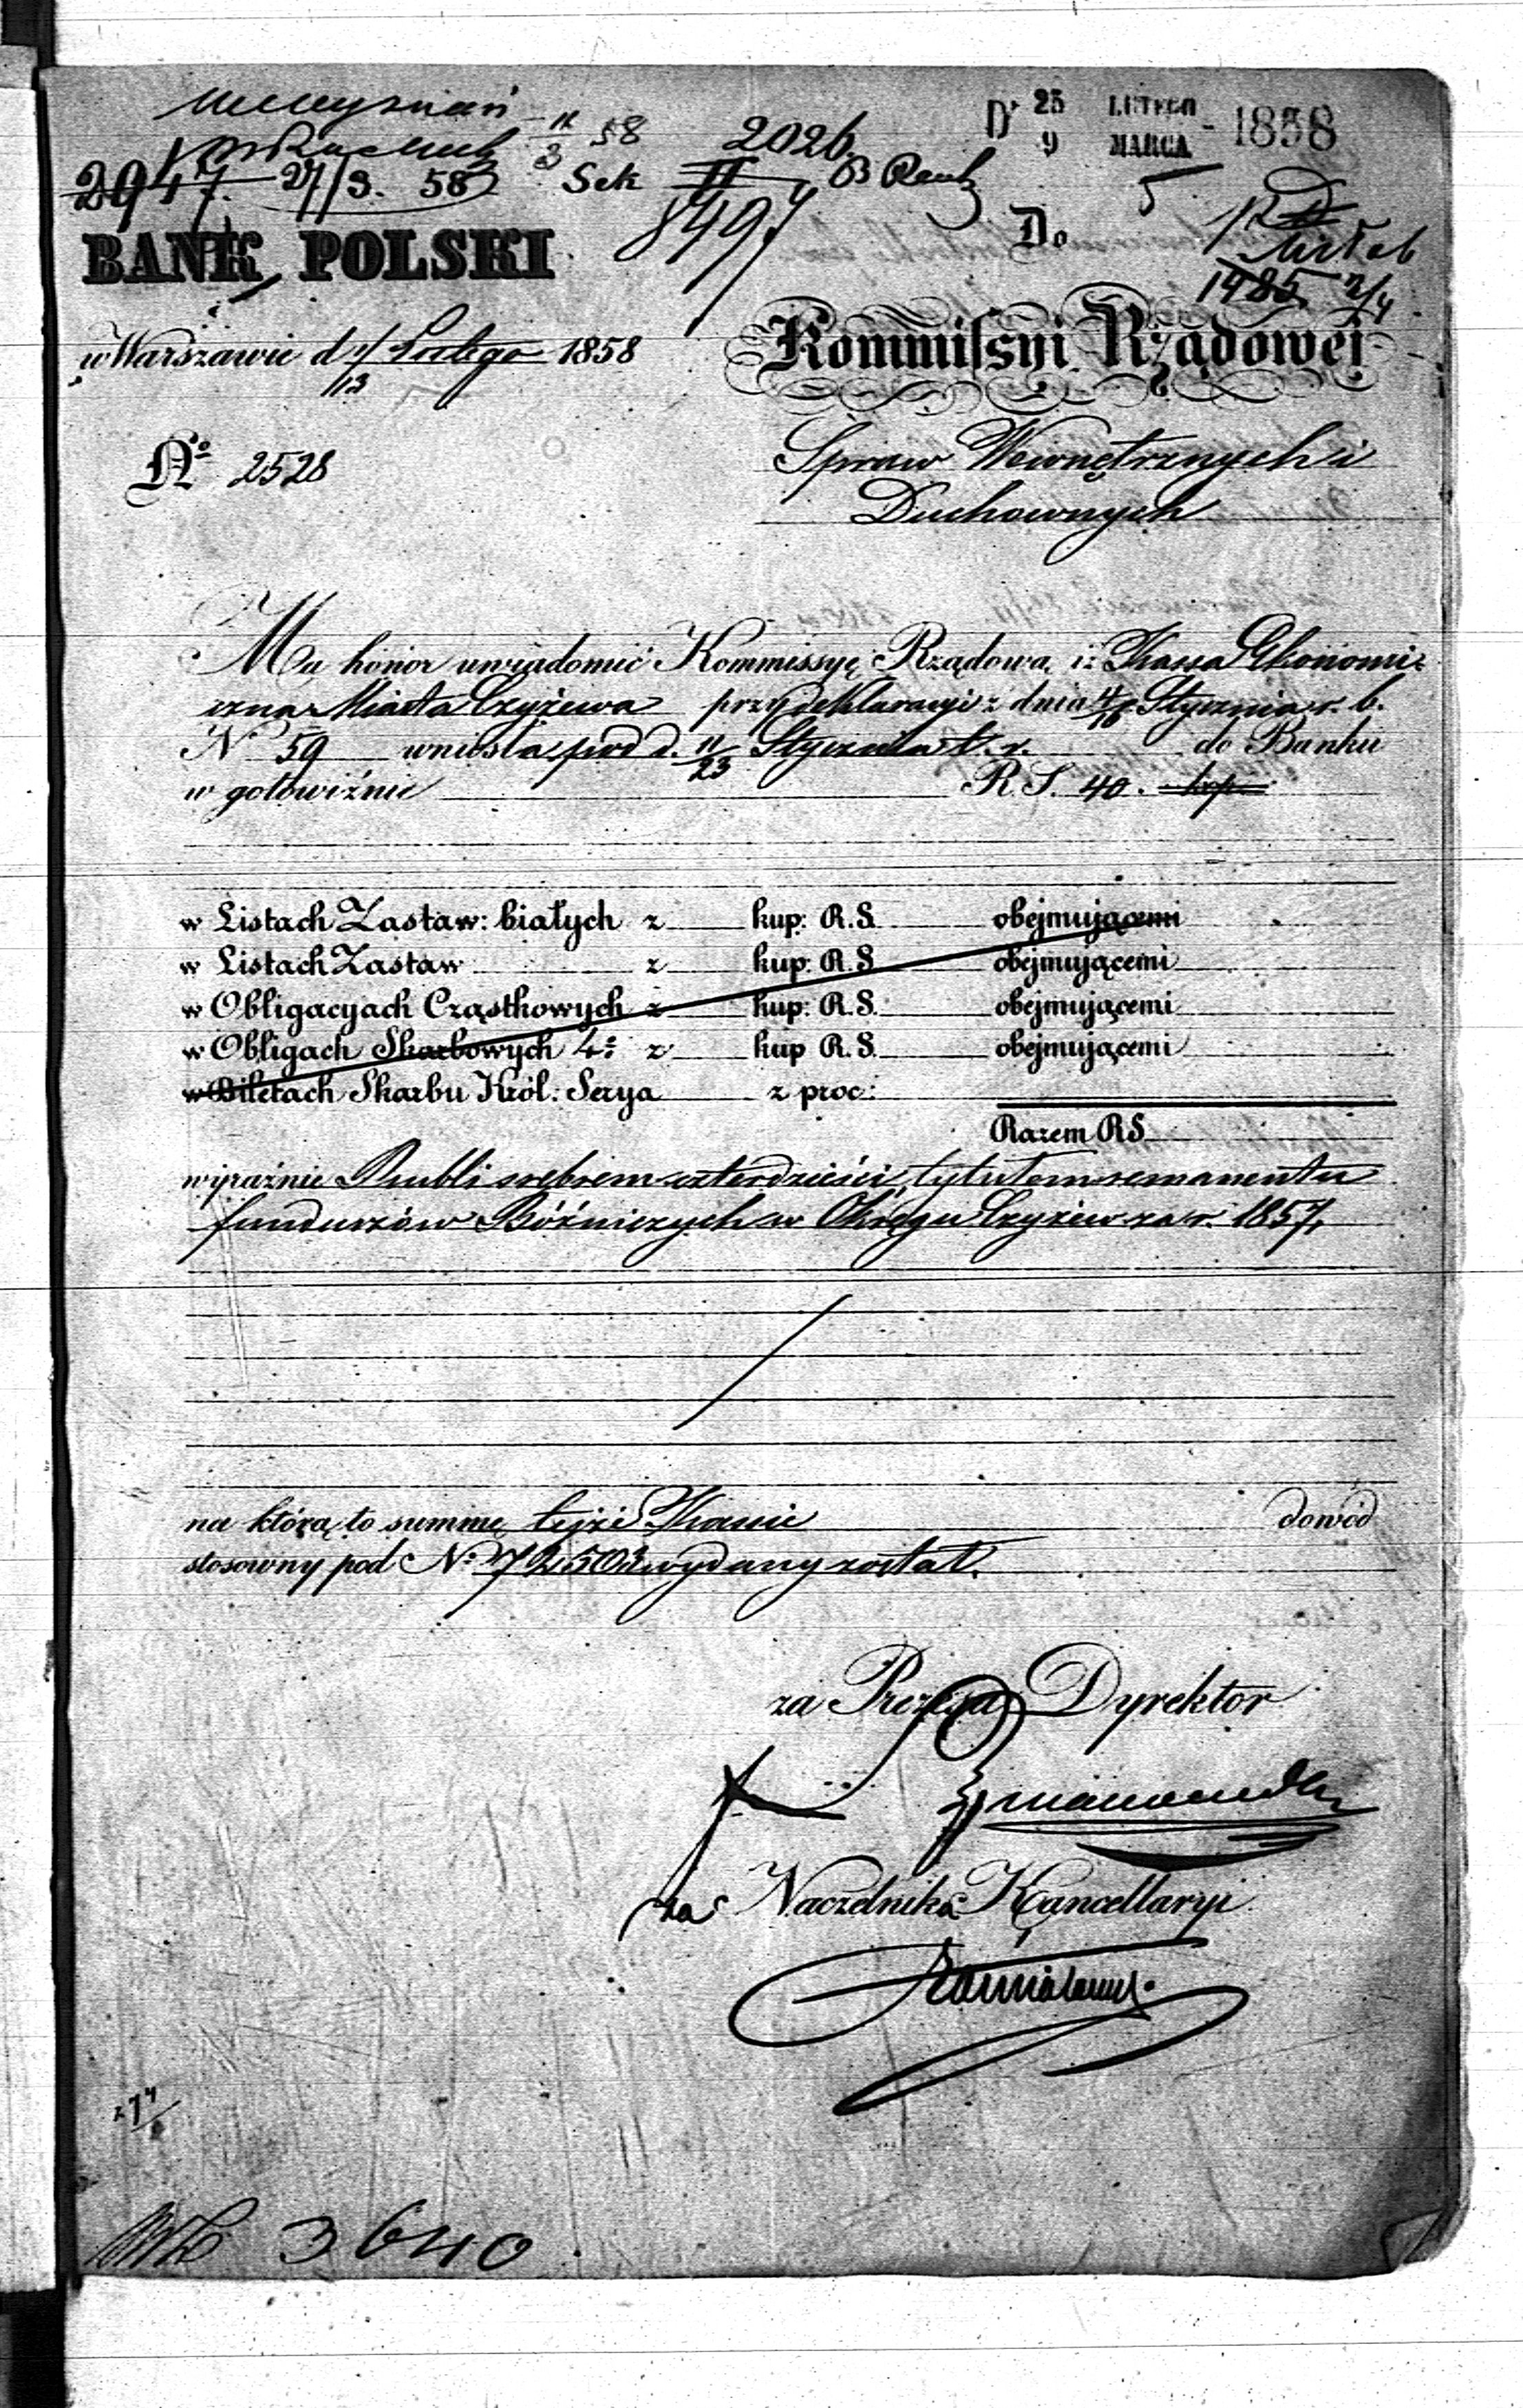 58
2026
Dº 25 LUTEGO 1858
9 MARCA
2947 27/3. 58 Sek II
8497
Do
1985 2/4
BANK POLSKI
Kommissyi Rządowej
w Warszawie d 1/13 Lutego 1858
Spraw Wewnętrznych i
Nº 2528
Duchownych
Ma honor uwiadomić Kommissyę Rządową, iż Kassa Ekonomi-
czna Miasta Czyżewa przy deklaracyi z dnia 4/16 Stycznia r. b.
Nº 59 wniosła pod d. 11/23 Stycznia t. r. do Banku
w gotowiźnie R. S. 40. kop
w Listach Zastaw: białych z kup: R.S. obejmującemi
w Listach Zastaw z kup: R.S. obejmującemi
w Obligacyach Cząstkowych z kup: R.S. obejmującemi
w Obligach Skarbowych 4: z kup R.S. obejmującemi
w Biletach Skarbu Król: Serya z proc:
Razem RS
wyraźnie Rubli srebrem czterdzieści, tytułem remanentu
funduszów Bóźniczych w Okręgu Czyżew za r. 1857,
na którą to summę tejże Kassie dowód
stosowny pod Nº 72503 wydany został.
za Prezesa Dyrektor
za Naczelnika Kancellaryi
3640